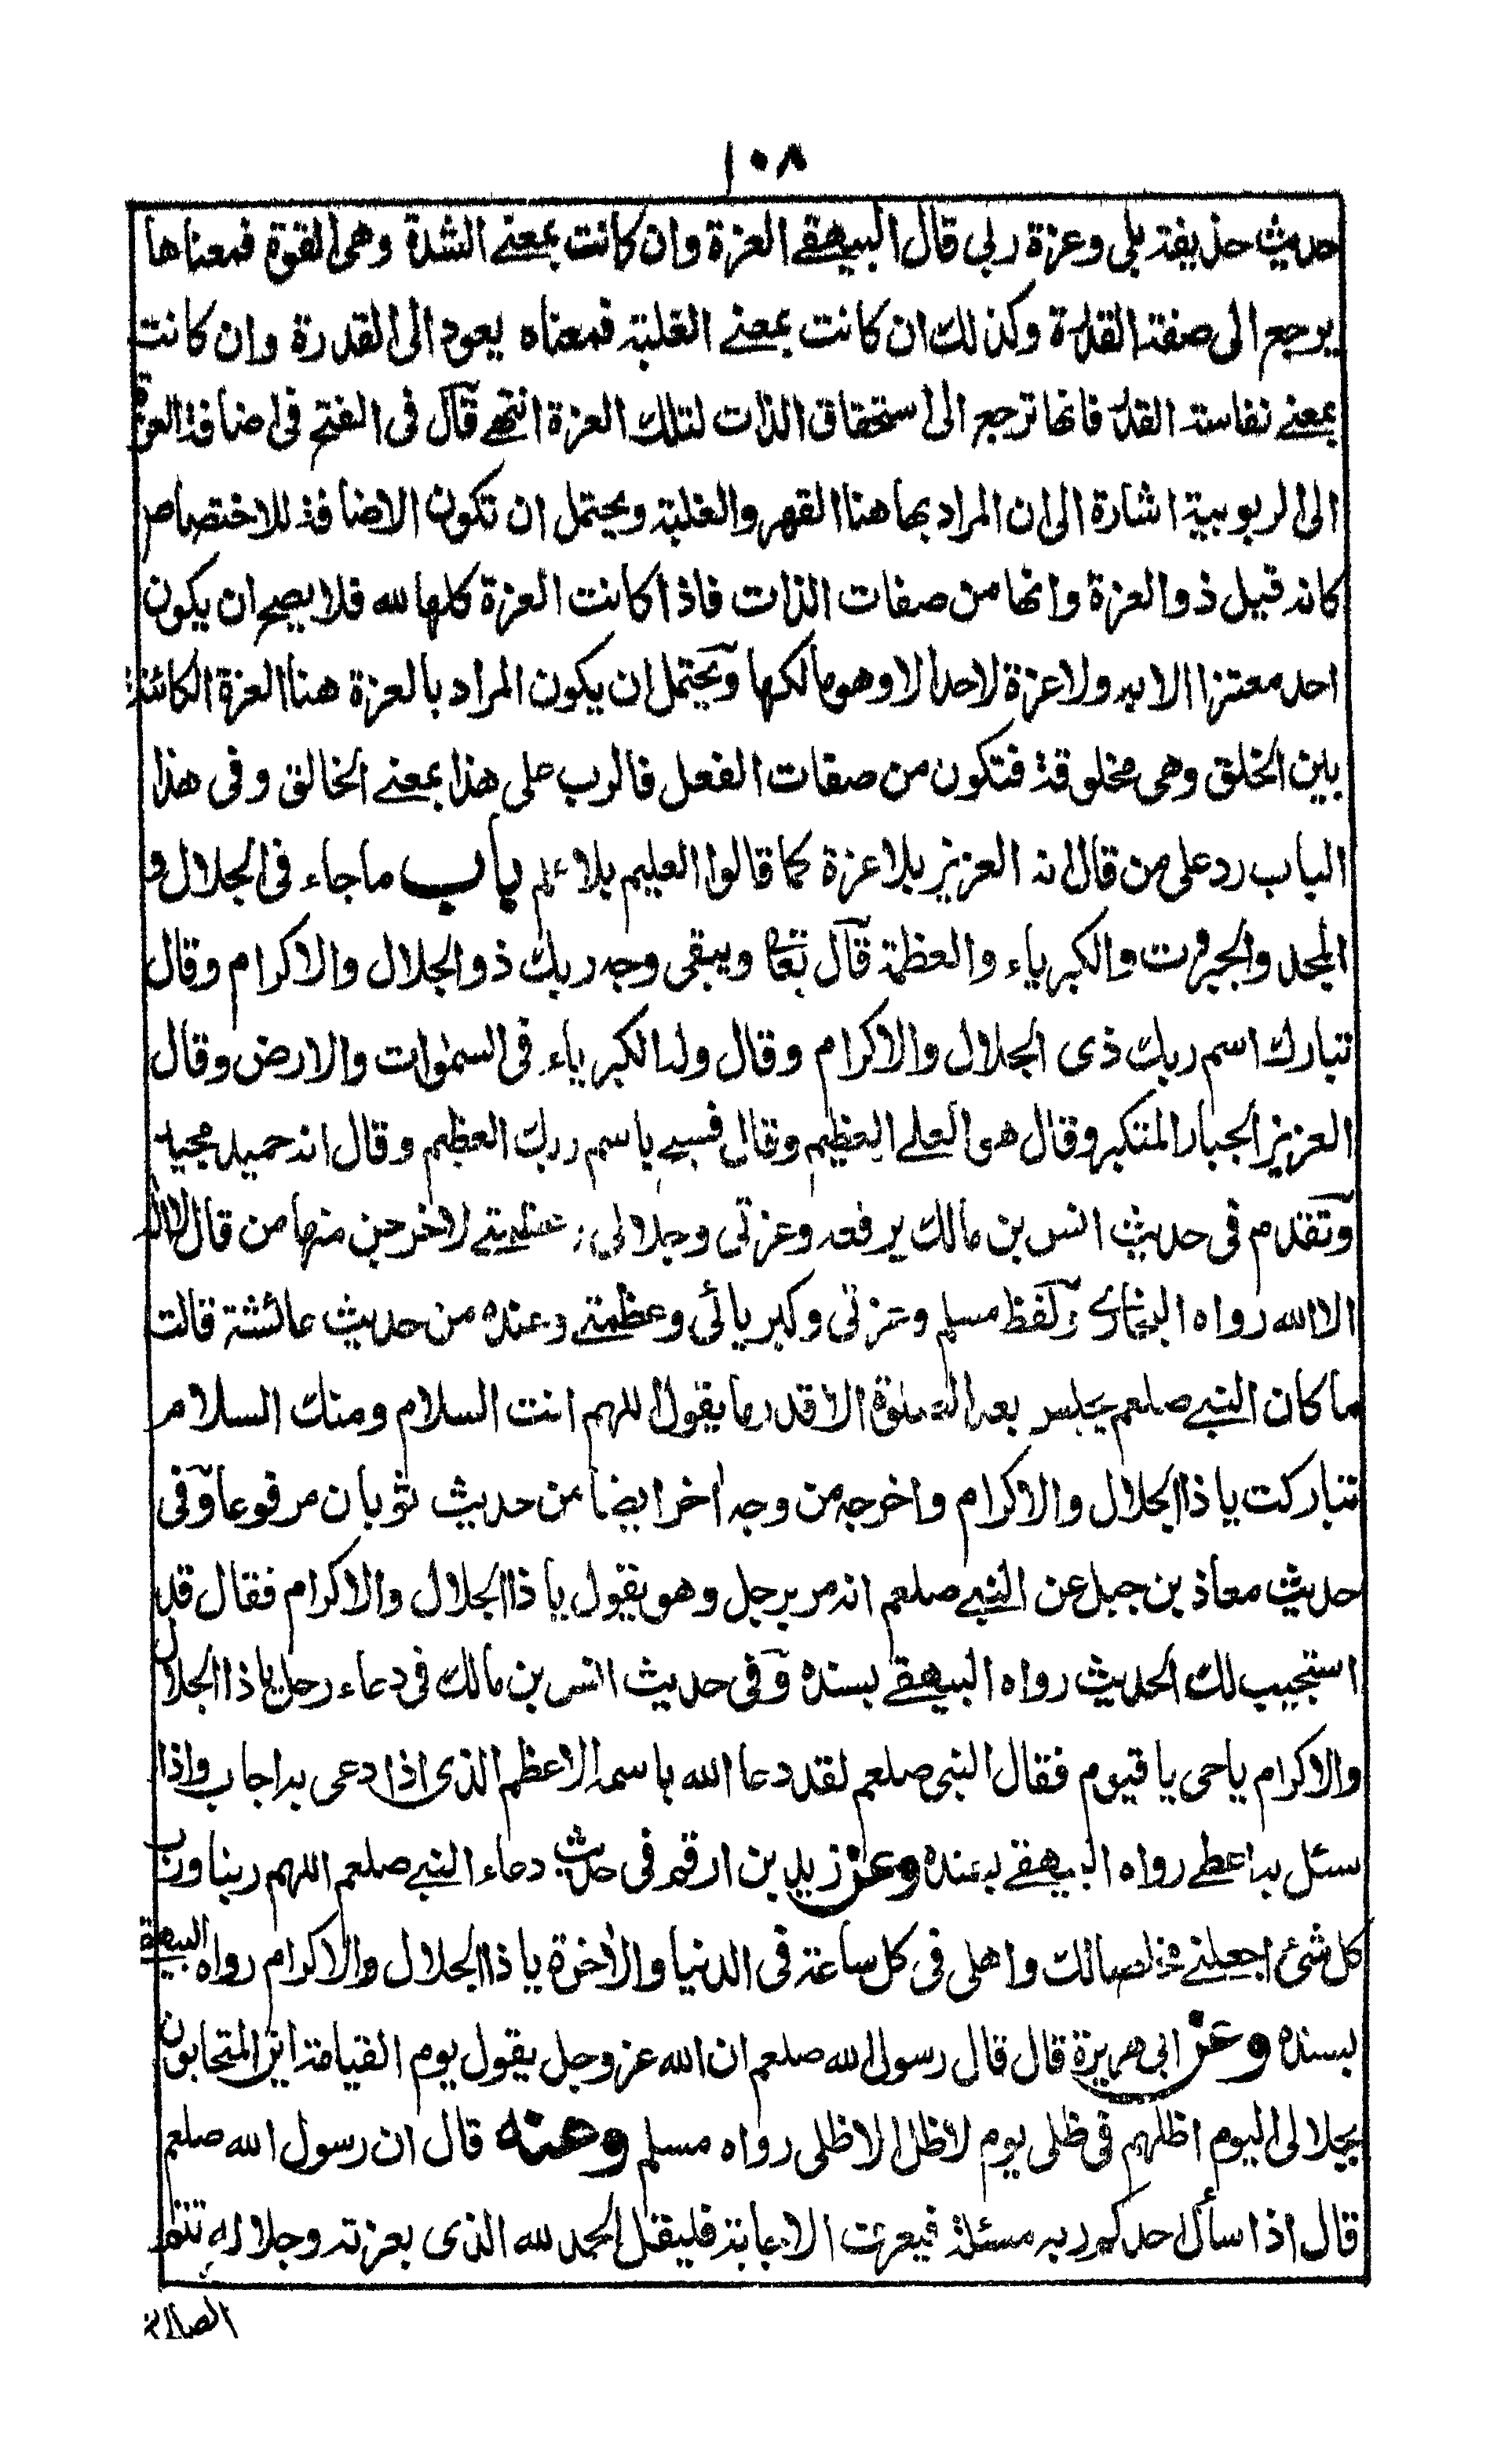 ١٠٨
حديث حذيفة بلى وعزة ربى قال البيهقے العزة وان كانت بمعنے الشدة وهى القوة فمعناها
يرجع الى صفة القدرة وكذلك ان كانت بمعنے الغلبة فمعناه يعود الى القدرة وان كانت
بمعنے نفاسة القدر فانها ترجع الى استحقاق الذات لتلك العزة انتهے قال فى الفتح فى اضافة العزة
الى الربوبية اشارة الى ان المراد بها هنا القهر والغلبة ويحتمل ان تكون الاضافة للاختصاص
كانه قيل ذو العزة وانها من صفات الذات فاذا كانت العزة كلها لله فلا يصح ان يكون
احد معتزا الا به ولا عزة لاحد الا وهو مالكها ويحتمل ان يكون المراد بالعزة هنا العزة الكائنة
بين الخلق وهى مخلوقة فتكون من صفات الفعل فالرب على هذا بمعنے الخالق وفى هذا
الباب رد على من قال انه العزيز بلا عزة كما قالوا العليم بلا علم باب ما جاء فى الجلال و
المجد والجبروت والكبرياء والعظمة قال تعالى ويبقى وجه ربك ذو الجلال والاكرام وقال
تبارك اسم ربك ذى الجلال والاكرام وقال وله الكبرياء فى السموات والارض وقال
العزيز الجبار المتكبر وقال هو العلے العظيم وقال فسبح باسم ربك العظيم وقال انه حميد مجيد
وتقدم فى حديث انس بن مالك يرفعه وعزتى وجلالى وعظمتے لاخرجن منها من قال لا اله
الا الله رواه البخارى ولفظ مسلم وعزتى وكبريائى وعظمتے وعنده من حديث عائشة قالت
ما كان النبے صلعم يجلس بعد الصلوة الا قدر ما يقول اللهم انت السلام ومنك السلام
تباركت يا ذا الجلال والاكرام واخرجه من وجه اخر ايضا من حديث ثوبان مرفوعا وفى
حديث معاذ بن جبل عن النبے صلعم انه مر برجل وهو يقول يا ذا الجلال والاكرام فقال قد
استجيب لك الحديث رواه البيهقے بسنده وفى حديث انس بن مالك فى دعاء رجل يا ذا الجلال
والاكرام يا حى يا قيوم فقال النبى صلعم لقد دعا الله باسمه الاعظم الذى اذا دعى به اجاب واذا
سئل به اعطے رواه البيهقے بسنده وعن زيد بن ارقم فى حديث دعاء النبے صلعم اللهم ربنا ورب
كل شئ اجعلنے مخلصا لك واهلى فى كل ساعة فى الدنيا والاخرة يا ذا الجلال والاكرام رواه البيهقے
بسنده وعن ابى هريرة قال قال رسول الله صلعم ان الله عز وجل يقول يوم القيامة اين المتحابون
بجلالى اليوم اظلهم فى ظلى يوم لا ظل الا ظلى رواه مسلم وعنه قال ان رسول الله صلعم
قال اذا سأل احدكم ربه مسئلة فيعرف الاجابة فليقل الحمد لله الذى بعزته وجلاله تتم